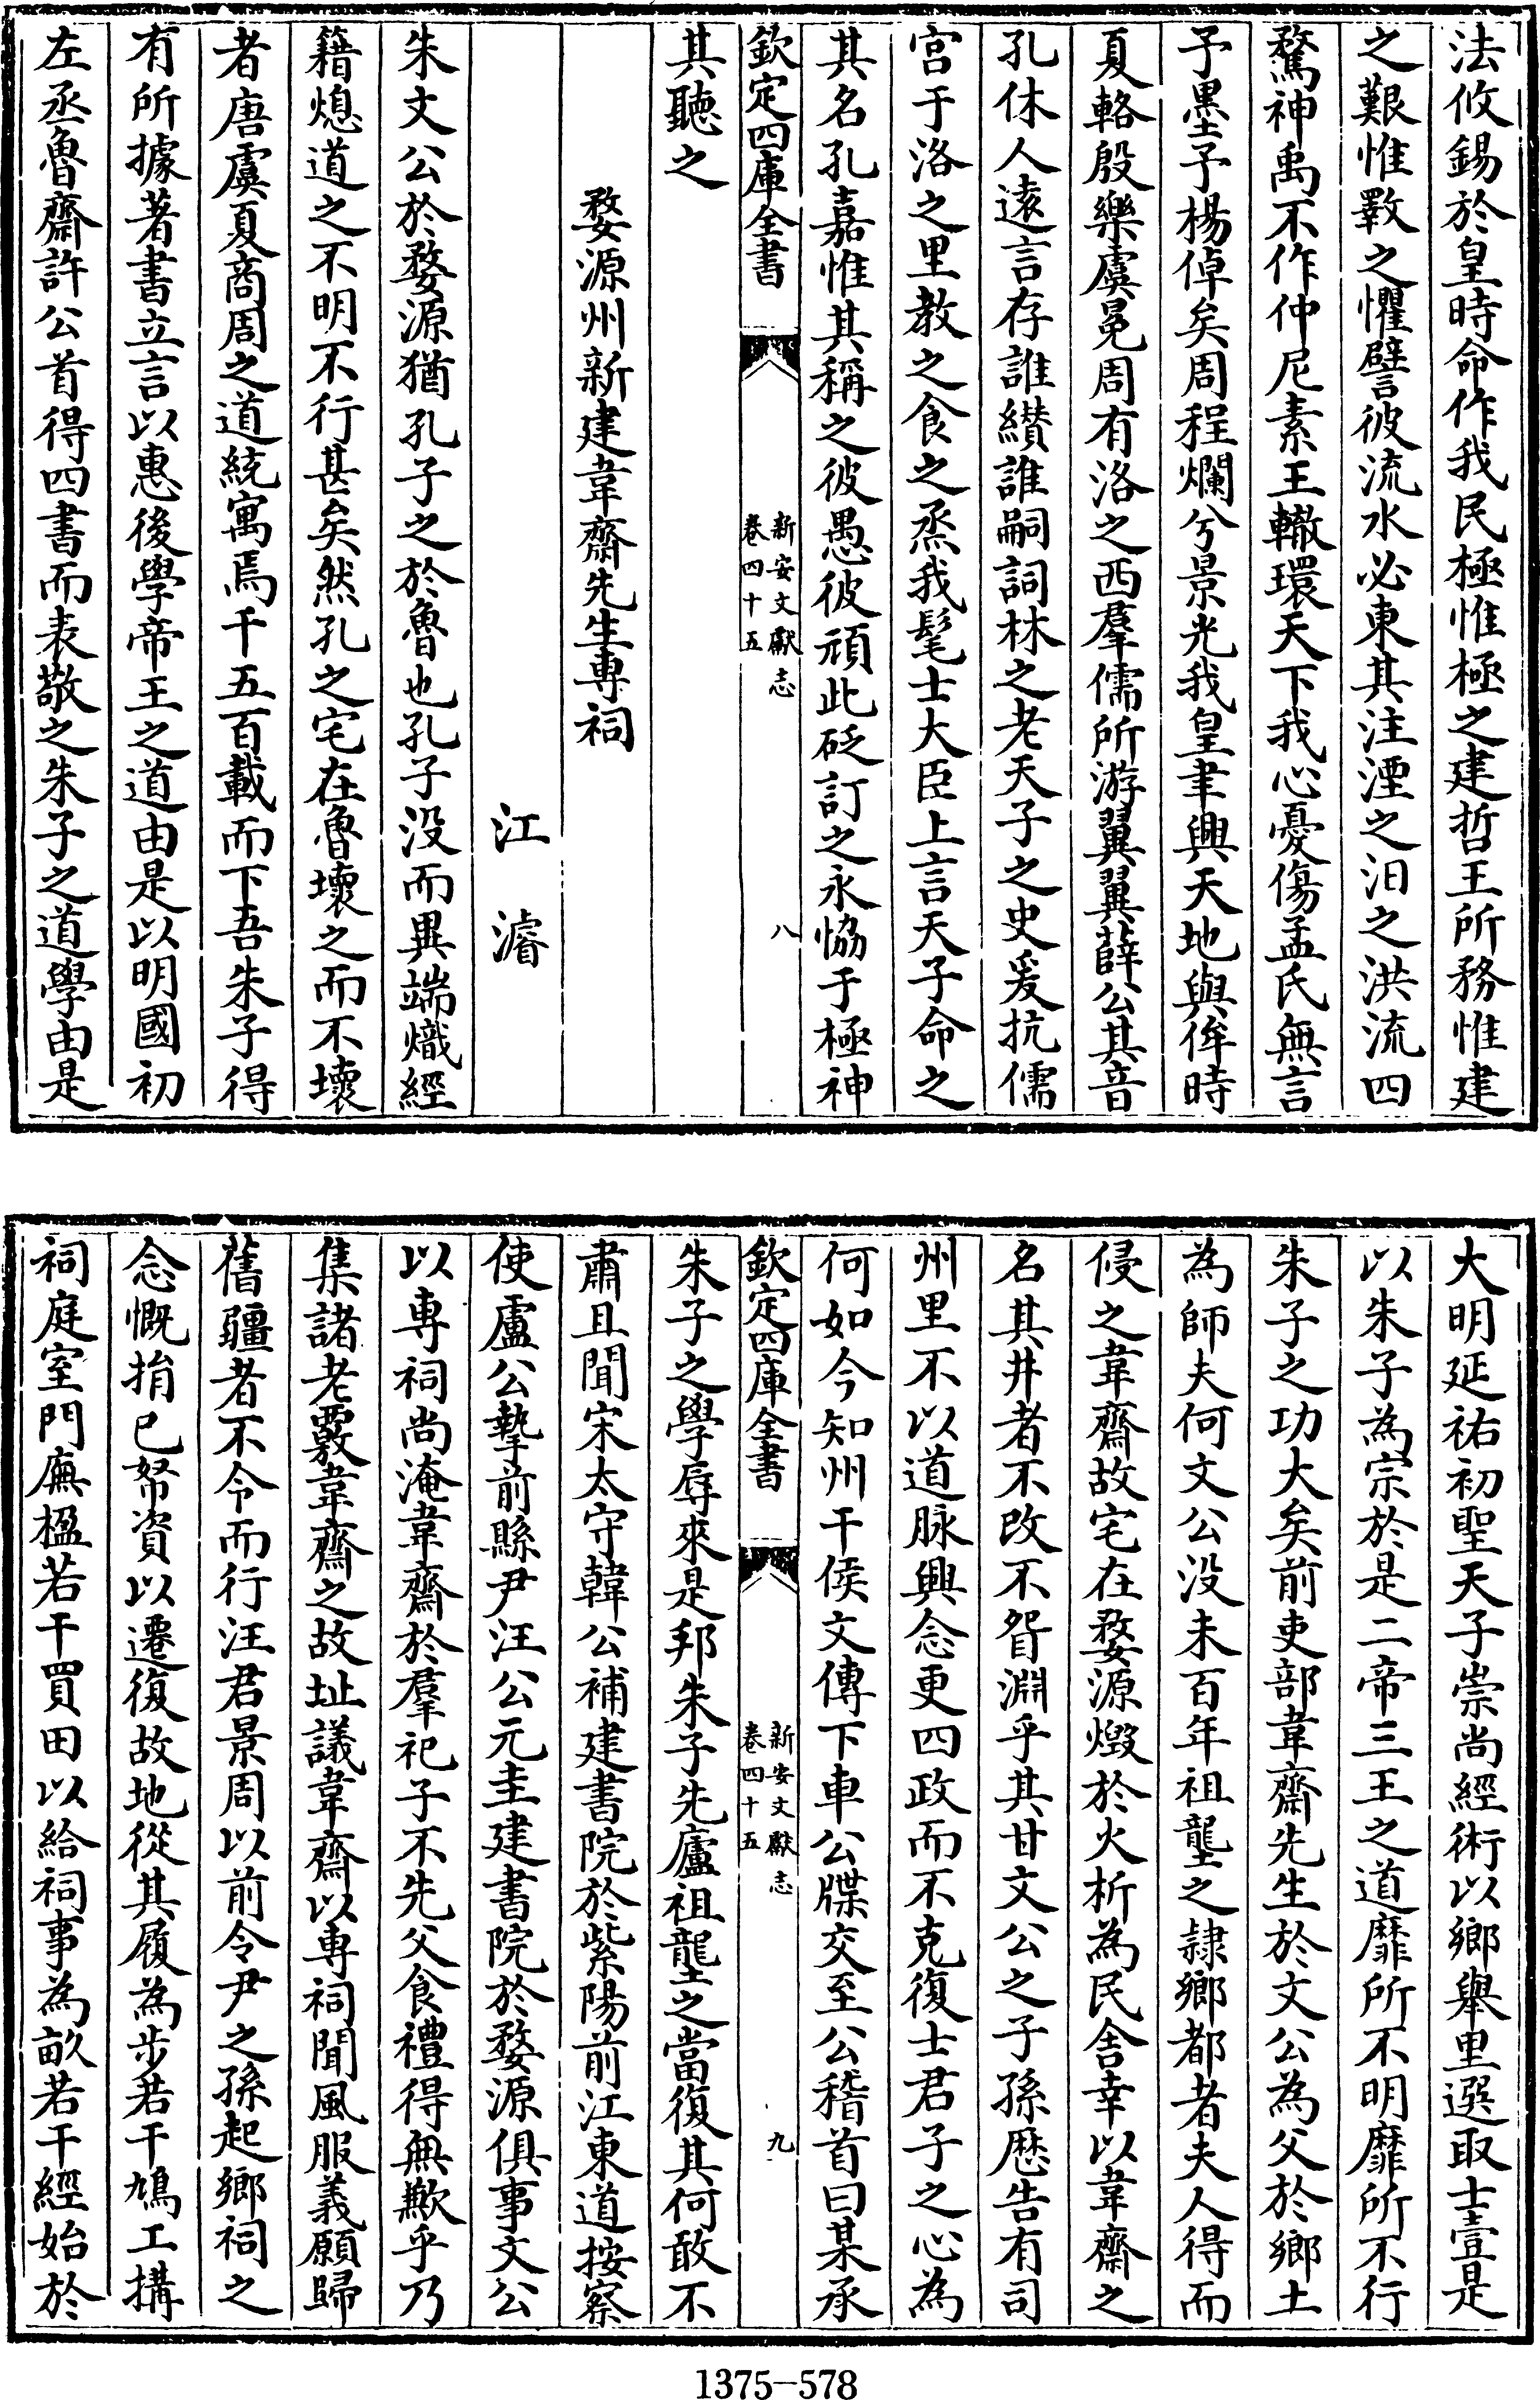 法攸錫於皇時命作我民極惟極之建哲王所務惟建
之艱惟斁之懼譬彼流水必東其注湮之汩之洪流四
騖神禹不作仲尼素王轍環天下我心憂傷孟氏無言
予墨予楊倬矣周程爛兮景光我皇聿興天地與侔時
夏輅殷樂虞冕周有洛之西羣儒所游翼翼薛公其音
孔休人遠言存誰纉誰嗣詞林之老天子之史爰抗儒
宫于洛之里教之食之烝我髦士大臣上言天子命之
其名孔嘉惟其稱之彼愚彼頑此砭訂之永恊于極神
欽定四庫全書
新安文獻志
卷四十五
八
其聽之
婺源州新建韋齋先生專祠
江濬
朱文公於婺源猶孔子之於魯也孔子没而異端熾經
籍熄道之不明不行甚矣然孔之宅在魯壞之而不壞
者唐虞夏商周之道統寓焉千五百載而下吾朱子得
有所據著書立言以惠後學帝王之道由是以明國初
左丞魯齋許公首得四書而表敬之朱子之道學由是
大明延祐初聖天子崇尚經術以鄉舉里選取士壹是
以朱子為宗於是二帝三王之道靡所不明靡所不行
朱子之功大矣前吏部韋齋先生於文公為父於鄉土
為師夫何文公没未百年祖壟之隷鄉都者夫人得而
侵之韋齋故宅在婺源燬於火析為民舍幸以韋齋之
名其井者不改不眢淵乎其甘文公之子孫厯告有司
州里不以道脉興念更四政而不克復士君子之心為
何如今知州干侯文傳下車公牒交至公稽首曰某承
欽定四庫全書
新安文獻志
卷四十五
九
朱子之學辱來是邦朱子先廬祖壟之當復其何敢不
肅且聞宋太守韓公補建書院於紫陽前江東道按察
使盧公摯前縣尹汪公元圭建書院於婺源俱事文公
以專祠尚淹韋齋於羣祀子不先父食禮得無歉乎乃
集諸老覈韋齋之故址議韋齋以專祠聞風服義願歸
舊疆者不令而行汪君景周以前令尹之孫起鄉祠之
念慨捐已帑資以遷復故地從其履為步若干鳩工搆
祠庭室門廡楹若干買田以給祠事為畝若干經始於
1375-578